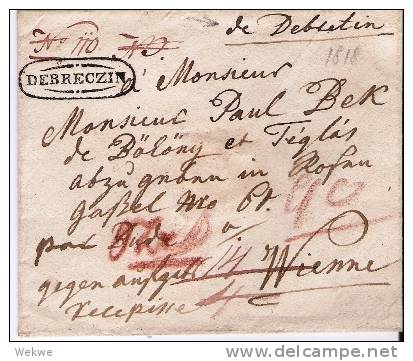 de Debretin
No 110
1818
DEBRECZIN
à Monsieur
Monsieur Paul Bek
de Bölöny et Téglás
abzugeben in Rosen
gaßel Nro 61.
par Bude à
Wienne
gegen
recepisse
Wekwe
www.delcampe.net